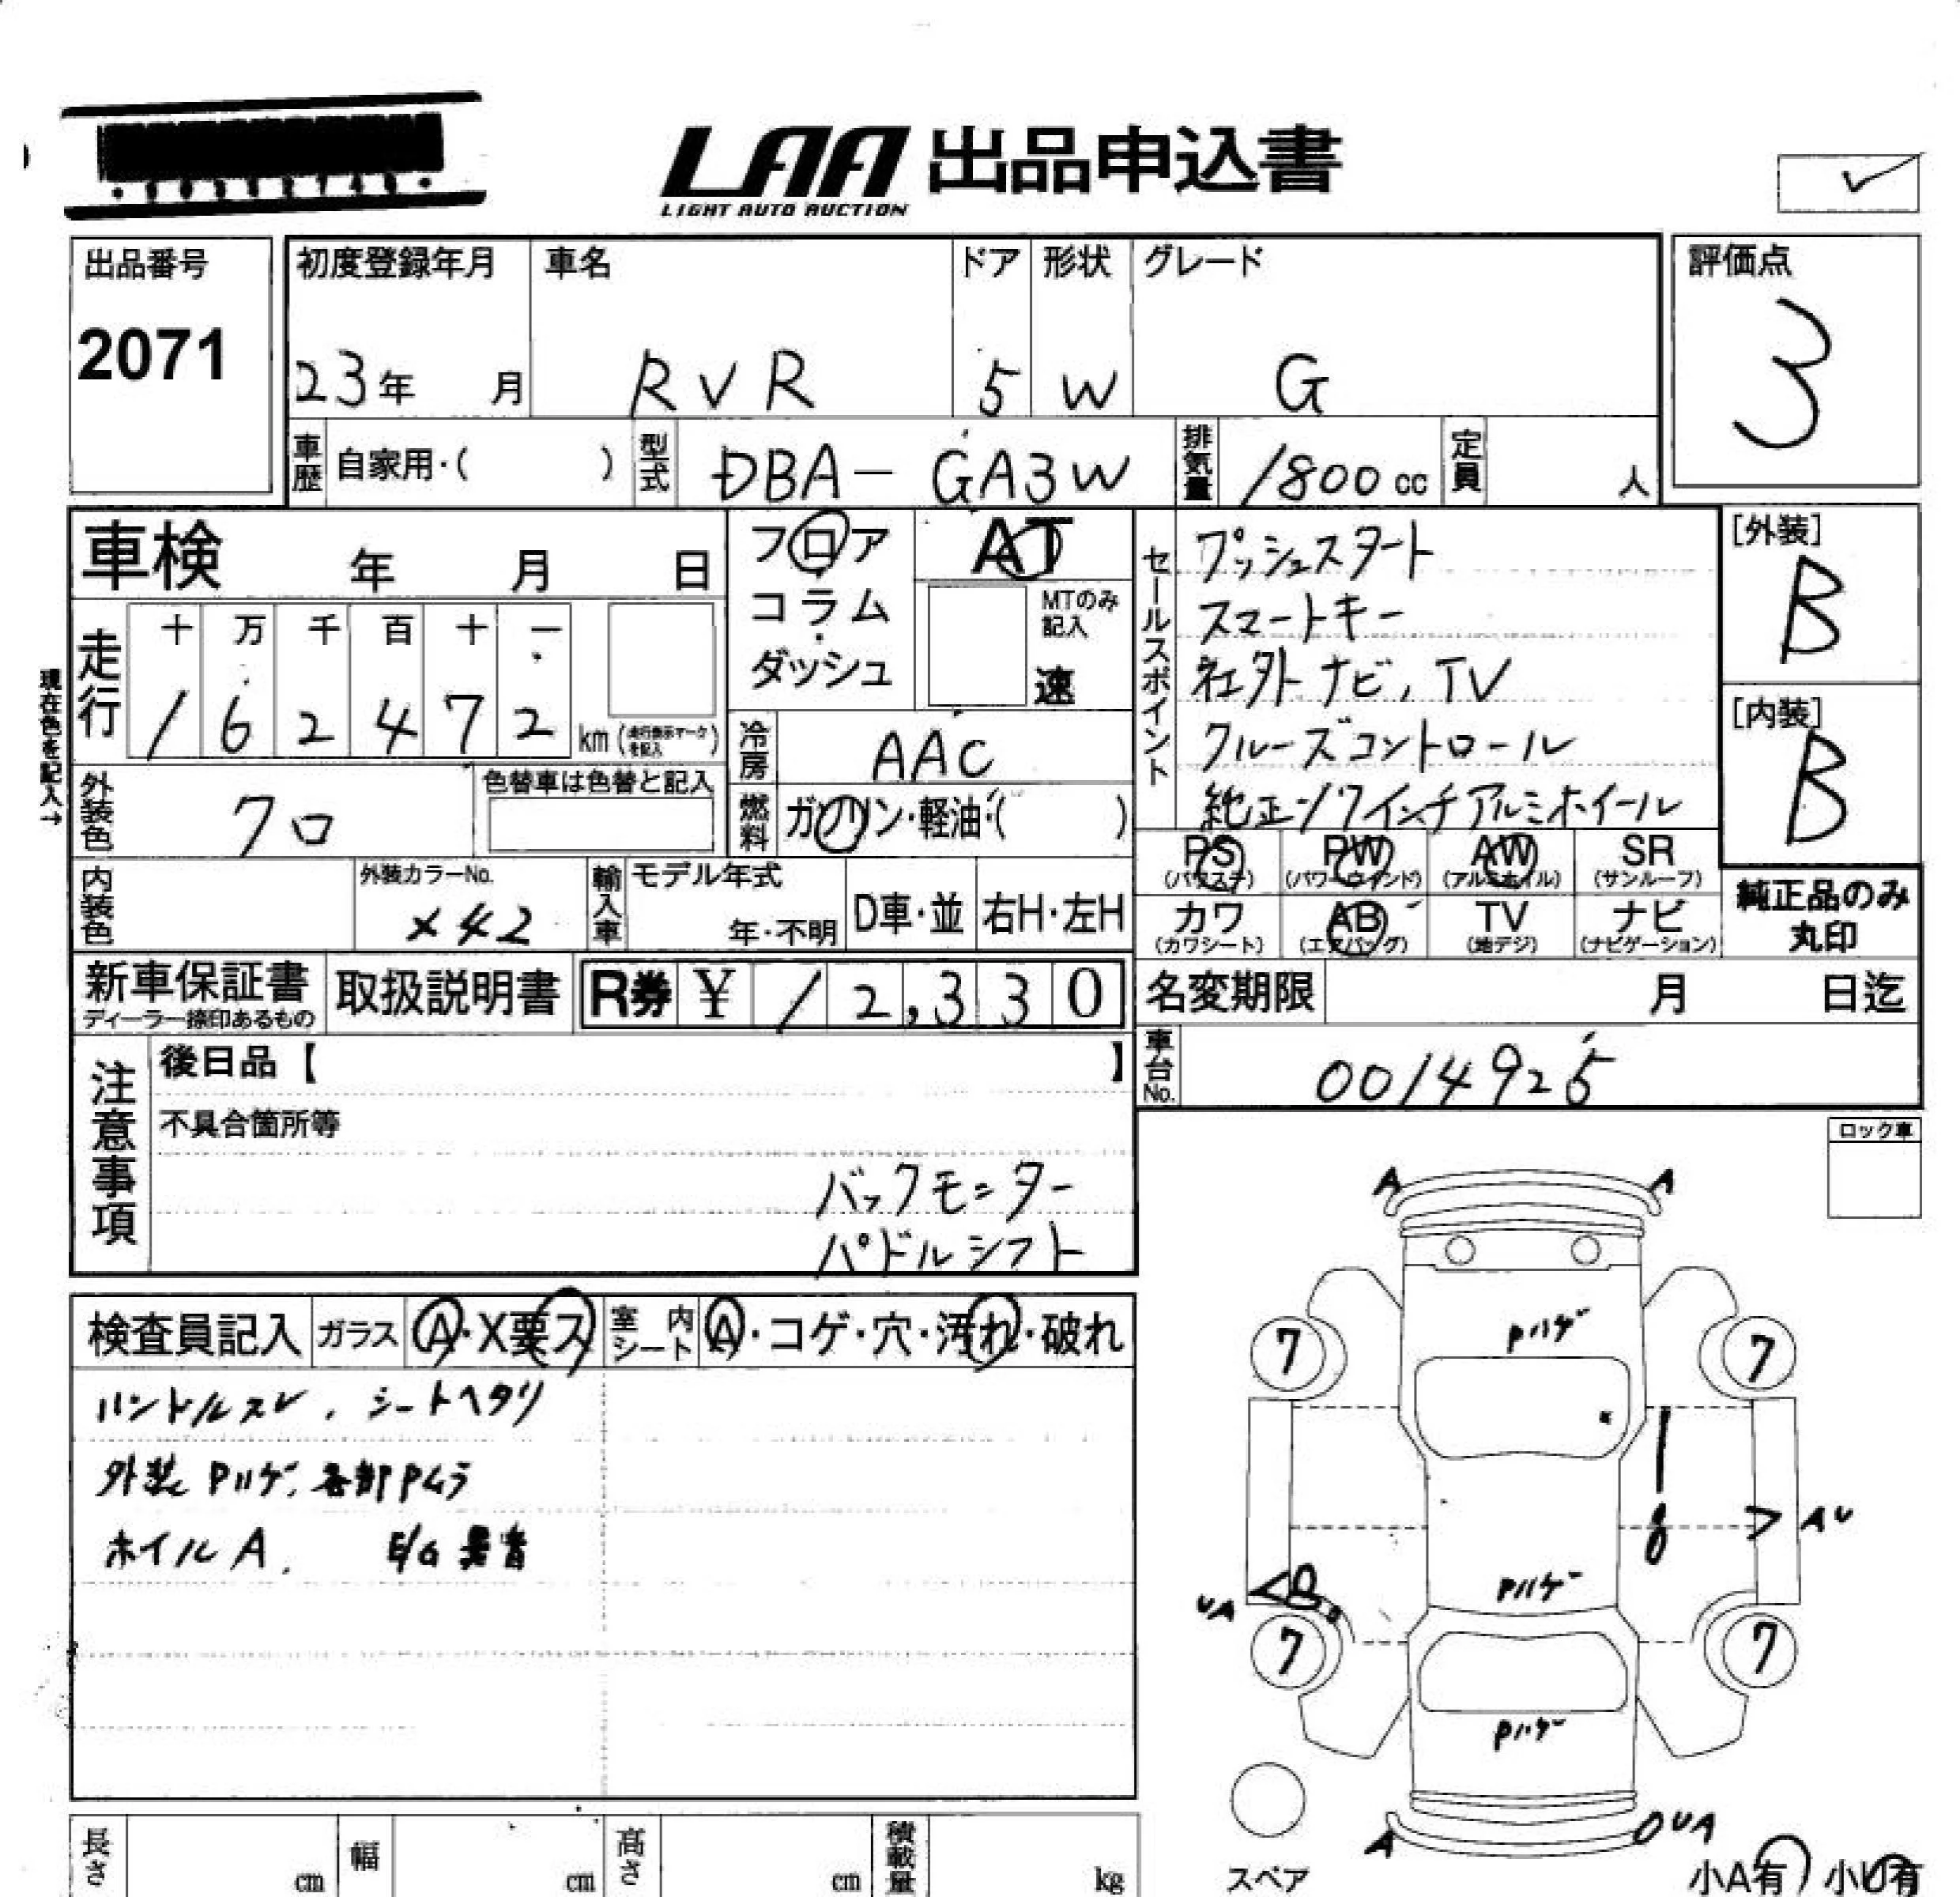 LAA 出品申込書
LIGHT AUTO AUCTION
出品番号
2071
初度登録年月
23年 月
車名
RVR
ドア
5
形状
W
グレード
G
評価点
3
車歴 自家用・( )
型式 DBA-GA3W
排気量 1800 cc
定員 人
車検 年 月 日
フロア
コラム
ダッシュ
AT
MTのみ記入
速
セールスポイント
プッシュスタート
スマートキー
社外ナビ、TV
クルーズコントロール
純正17インチアルミホイール
[外装]
B
[内装]
B
現在色を記入→
走行
十 万 千 百 十 一
1 6 2 4 7 2 km
冷房 AAC
燃料 ガソリン・軽油・( )
外装色 クロ
色替車は色替と記入
内装色
外装カラーNo.
X42
輸入車
モデル年式
年・不明
D車・並
右H・左H
PS (パワステ)
PW (パワーウインド)
AW (アルミホイル)
SR (サンルーフ)
カワ (カワシート)
AB (エアバッグ)
TV (地デジ)
ナビ (ナビゲーション)
純正品のみ
丸印
新車保証書
ディーラー捺印あるもの
取扱説明書
R券 ¥ 12,330
名変期限 月 日迄
車台No. 0014925
注意事項
後日品【 】
不具合箇所等
バックモニター
パドルシフト
ロック車
検査員記入
ガラス A・X要ス
室内シート A・コゲ・穴・汚れ・破れ
ハンドルスレ、シートヘタリ
外装Pハゲ、各部Pムラ
ホイルA、 E/G異音
A A
Pハゲ
7 7
AU
Pハゲ
UA
B
7 7
Pハゲ
A UA
スペア
小A有 小U有
長さ cm
幅 cm
高さ cm
積載量 kg